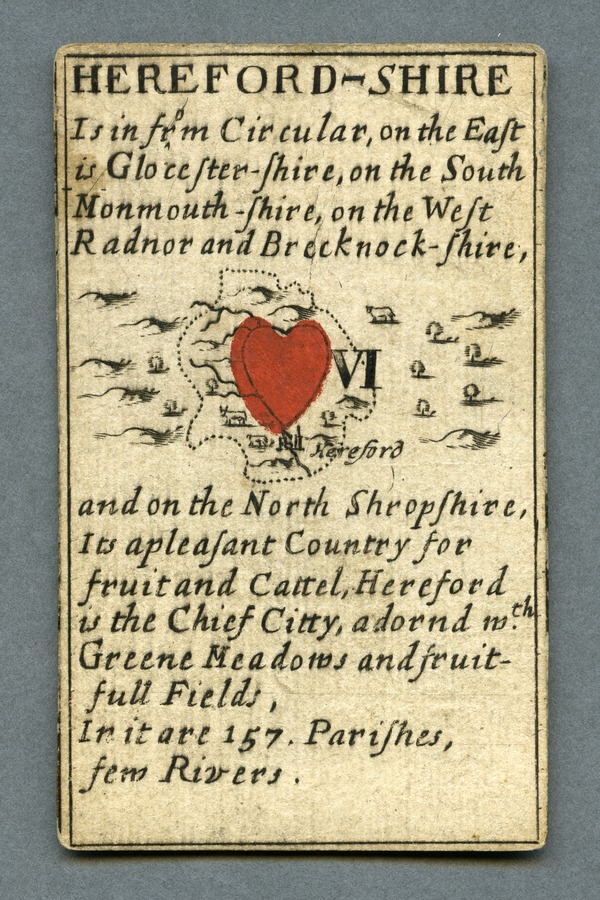 HEREFORD-SHIRE
Is in form Circular, on the Eaſt
is Gloceſter-ſhire, on the South
Monmouth-ſhire, on the Weſt
Radnor and Brecknock-ſhire,
VI
Hereford
and on the North Shropſhire,
Its apleaſant Country for
fruit and Cattel, Hereford
is the Chief Citty, adornd wth.
Greene Meadows and fruit-
full Fields,
In it are 157. Pariſhes,
few Rivers.